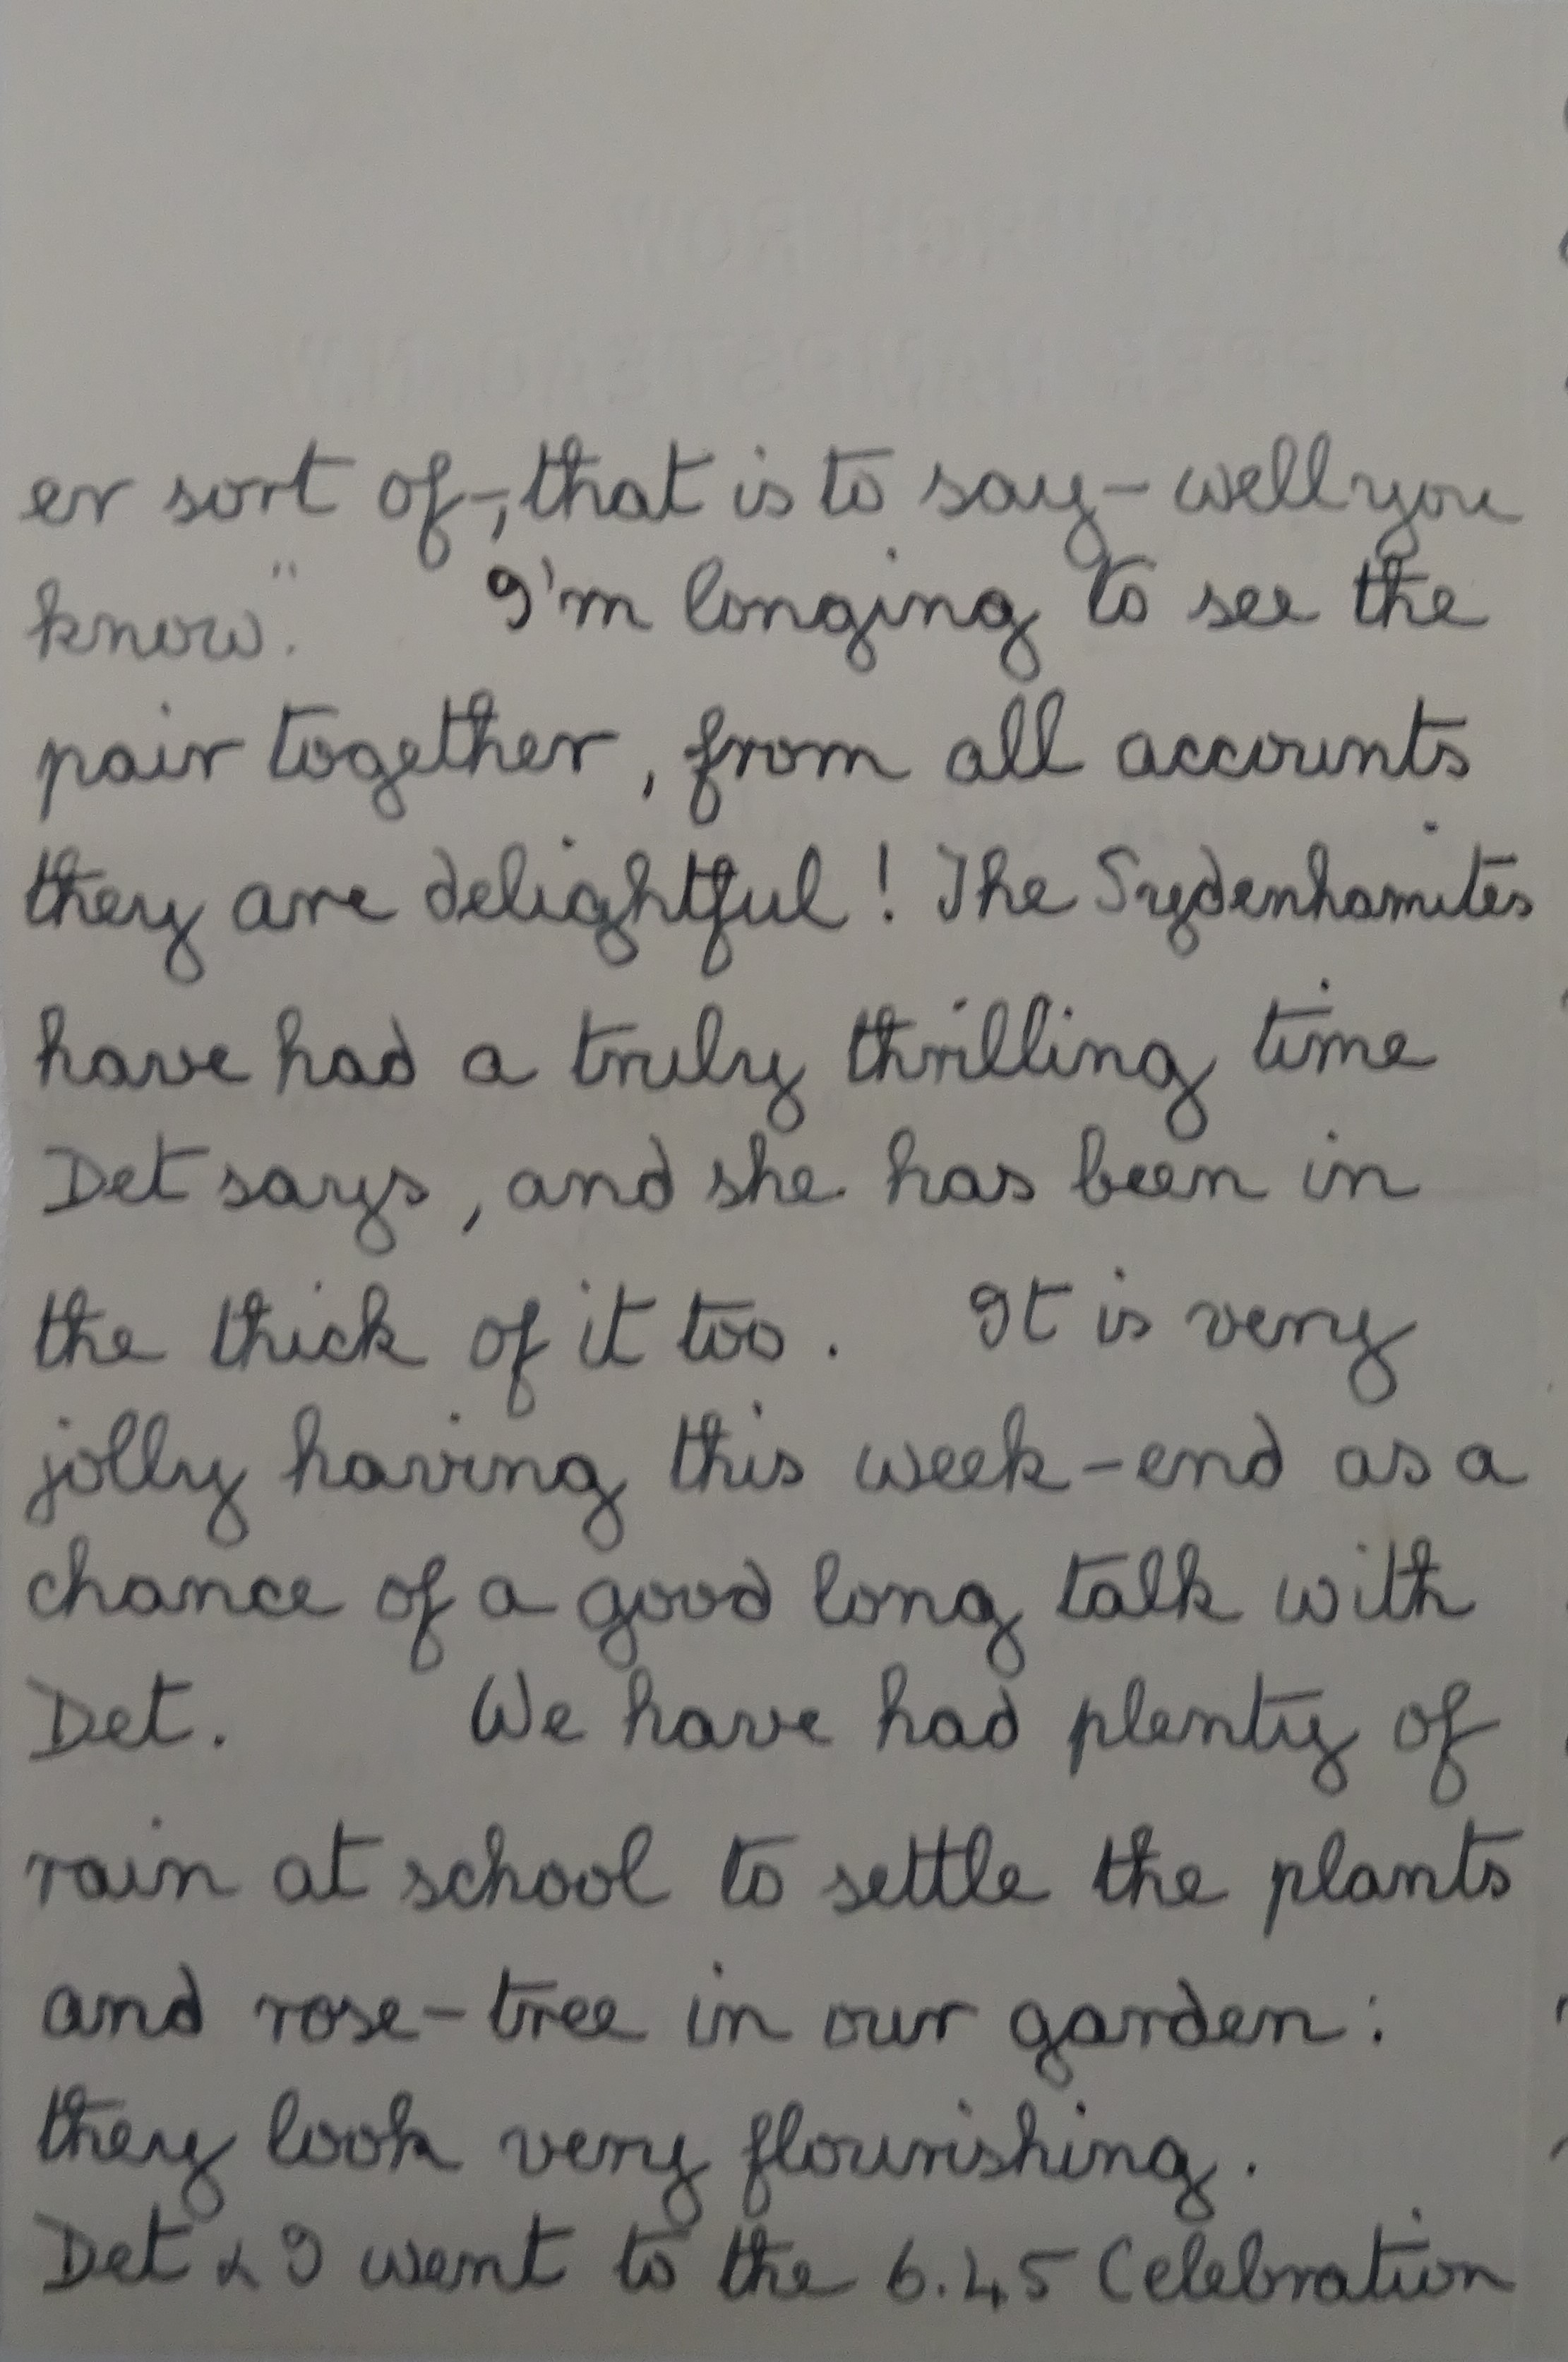 er sort of-, that is to say - well you
know."  I'm longing to see the
pair together, from all accounts
they are delightful! The Sydenhamites
have had a truly thrilling time
Det says, and she has been in
the thick of it too. It is very
jolly having this week-end as a
chance of a good long talk with
Det. We have had plenty of
rain at school to settle the plants
and rose-tree in our garden:
they look very flourishing.
Det & I went to the 6.45 Celebration